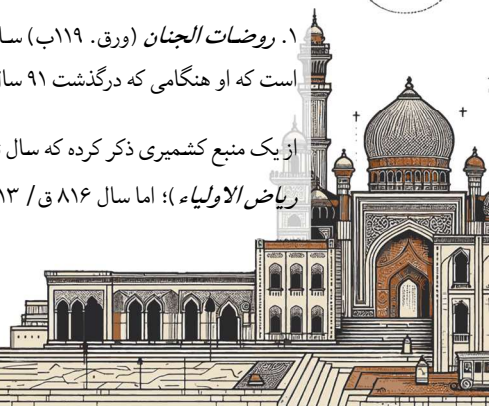 ۱. روضات الجنان (ورق. ۱۱۹ب)
است که او هنگامی که درگذشت ۹۱
از یک منبع کشمیری ذکر کرده که سال
ریاض الاولیاء)؛ اما سال ۸۱۶ ق/